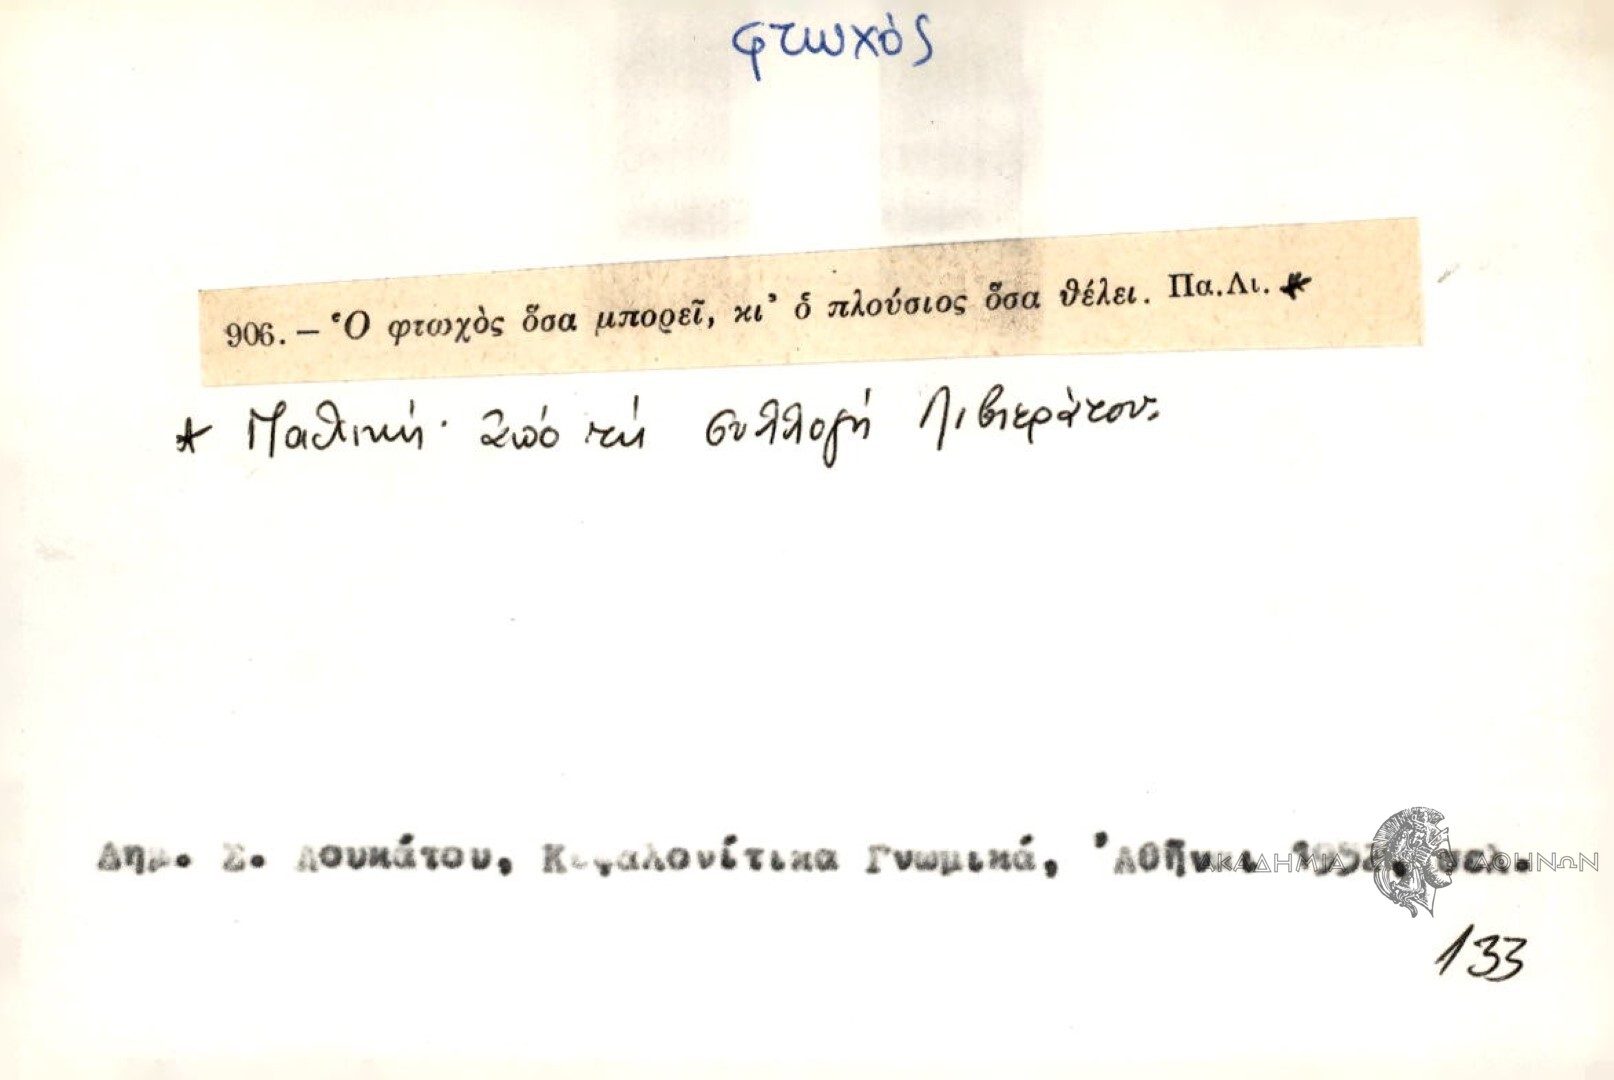 φτωχὸς
906. — Ὁ φτωχὸς ὅσα μπορεῖ, κι' ὁ πλούσιος ὅσα θέλει. Πα.Λι. *
* Παλικὴ· ἀπὸ τὴ συλλογὴ Λιβιεράτου.
Δημ. Σ. Λουκάτου, Κεφαλονίτικα Γνωμικά, Ἀθῆναι 1952, σελ.
ΑΚΑΔΗΜΙΑ ΑΘΗΝΩΝ
133